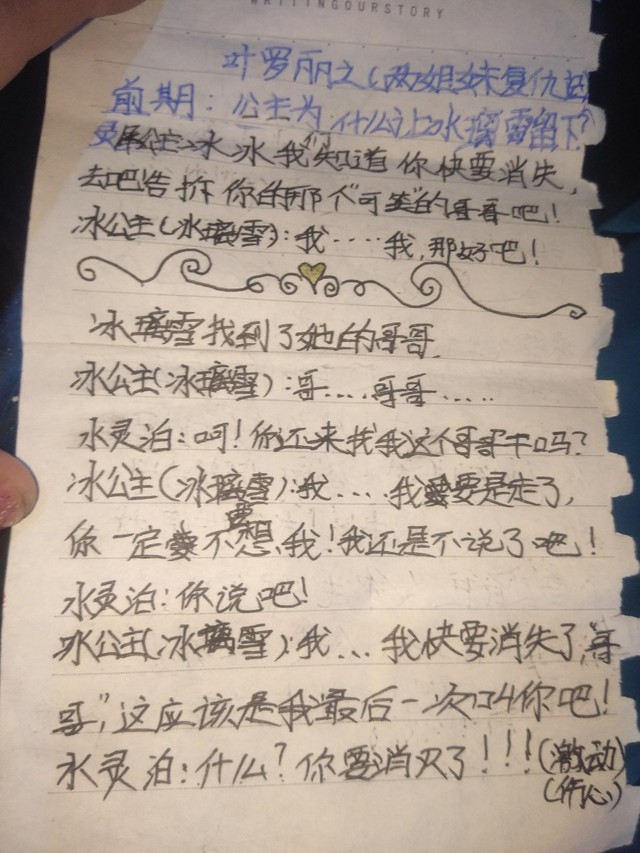 WRITINGOURSTORY
叶罗丽之(两姐妹复仇记
前期:公主为什么让冰璃雪留下?
灵公主:冰冰我知道你快要消失,
去吧告拆你的那个"可笑"的哥哥吧!
冰公主(冰璃雪):我····我,那好吧!
冰璃雪找到了她的哥哥.
冰公主(冰璃雪):哥...,哥哥.....
水灵泊:呵!你还来找我这个哥哥干吗?
冰公主(冰璃雪):我....我要是走了,
你一定要不想我!我还是不说了吧!
水灵泊:你说吧!
冰公主(冰璃雪):我...我快要消失了,哥
哥",这应该是我最后一次叫你吧!
水灵泊:什么?你要消灭了!!!(激动)
(伤心)